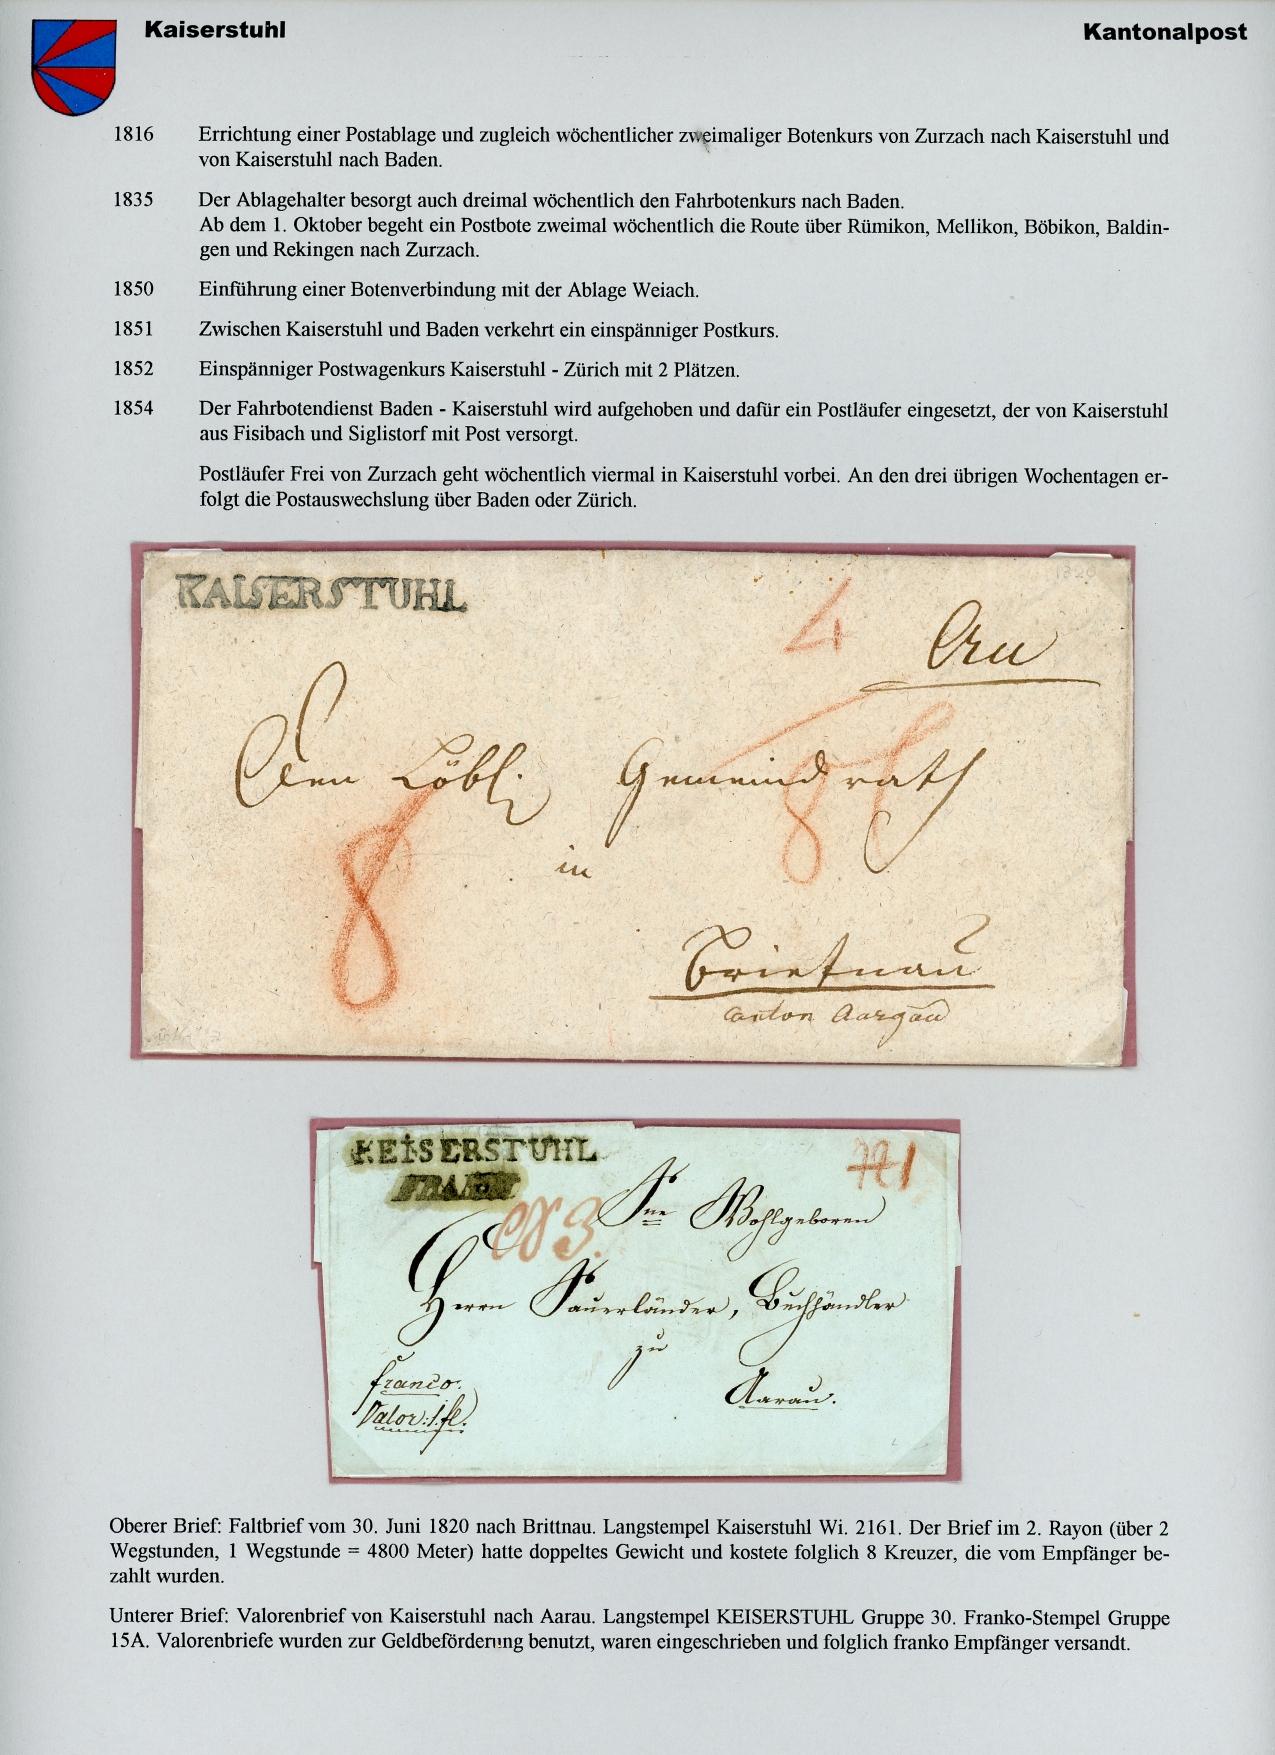 Kaiserstuhl
Kantonalpost
1816 Errichtung einer Postablage und zugleich wöchentlicher zweimaliger Botenkurs von Zurzach nach Kaiserstuhl und
von Kaiserstuhl nach Baden.
1835 Der Ablagehalter besorgt auch dreimal wöchentlich den Fahrbotenkurs nach Baden.
Ab dem 1. Oktober begeht ein Postbote zweimal wöchentlich die Route über Rümikon, Mellikon, Böbikon, Baldin-
gen und Rekingen nach Zurzach.
1850 Einführung einer Botenverbindung mit der Ablage Weiach.
1851 Zwischen Kaiserstuhl und Baden verkehrt ein einspänniger Postkurs.
1852 Einspänniger Postwagenkurs Kaiserstuhl - Zürich mit 2 Plätzen.
1854 Der Fahrbotendienst Baden - Kaiserstuhl wird aufgehoben und dafür ein Postläufer eingesetzt, der von Kaiserstuhl
aus Fisibach und Siglistorf mit Post versorgt.
Postläufer Frei von Zurzach geht wöchentlich viermal in Kaiserstuhl vorbei. An den drei übrigen Wochentagen er-
folgt die Postauswechslung über Baden oder Zürich.
KAISERSTUHL
4
Dem Löbl. Gemeindrath
8
in
Brietnau
Canton Aargau
KEISERSTUHL
FRANCO
Sne Wohlgeboren
Herrn Sauerländer, Buchhändler
zu
Aarau.
franco.
Valor: 1. fl.
Oberer Brief: Faltbrief vom 30. Juni 1820 nach Brittnau. Langstempel Kaiserstuhl Wi. 2161. Der Brief im 2. Rayon (über 2
Wegstunden, 1 Wegstunde = 4800 Meter) hatte doppeltes Gewicht und kostete folglich 8 Kreuzer, die vom Empfänger be-
zahlt wurden.
Unterer Brief: Valorenbrief von Kaiserstuhl nach Aarau. Langstempel KEISERSTUHL Gruppe 30. Franko-Stempel Gruppe
15A. Valorenbriefe wurden zur Geldbeförderung benutzt, waren eingeschrieben und folglich franko Empfänger versandt.